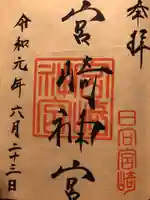 奉拝
日向宮崎
宮崎神宮
令和元年六月二十三日